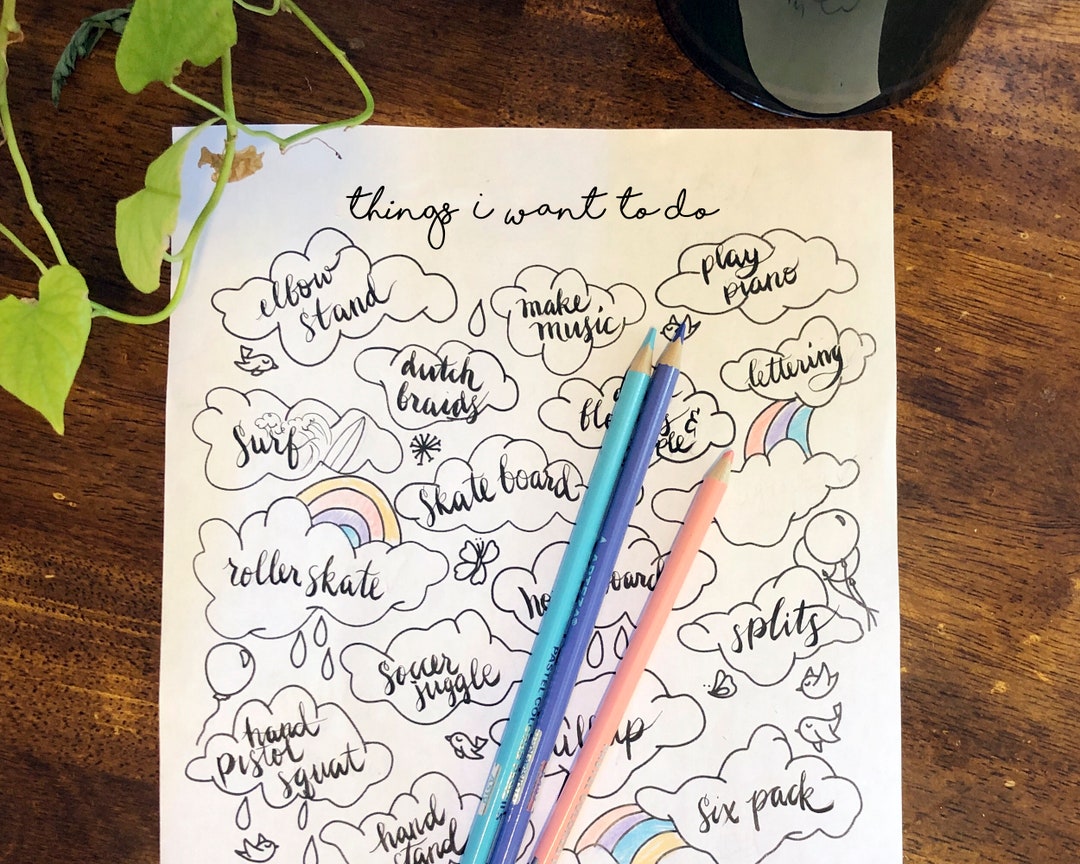 things i want to do
elbow
stand
make
music
play
piano
dutch
braids
lettering
surf
&
skate board
roller skate
splits
soccer
juggle
hand
pistol
squat
six pack
hand
stand